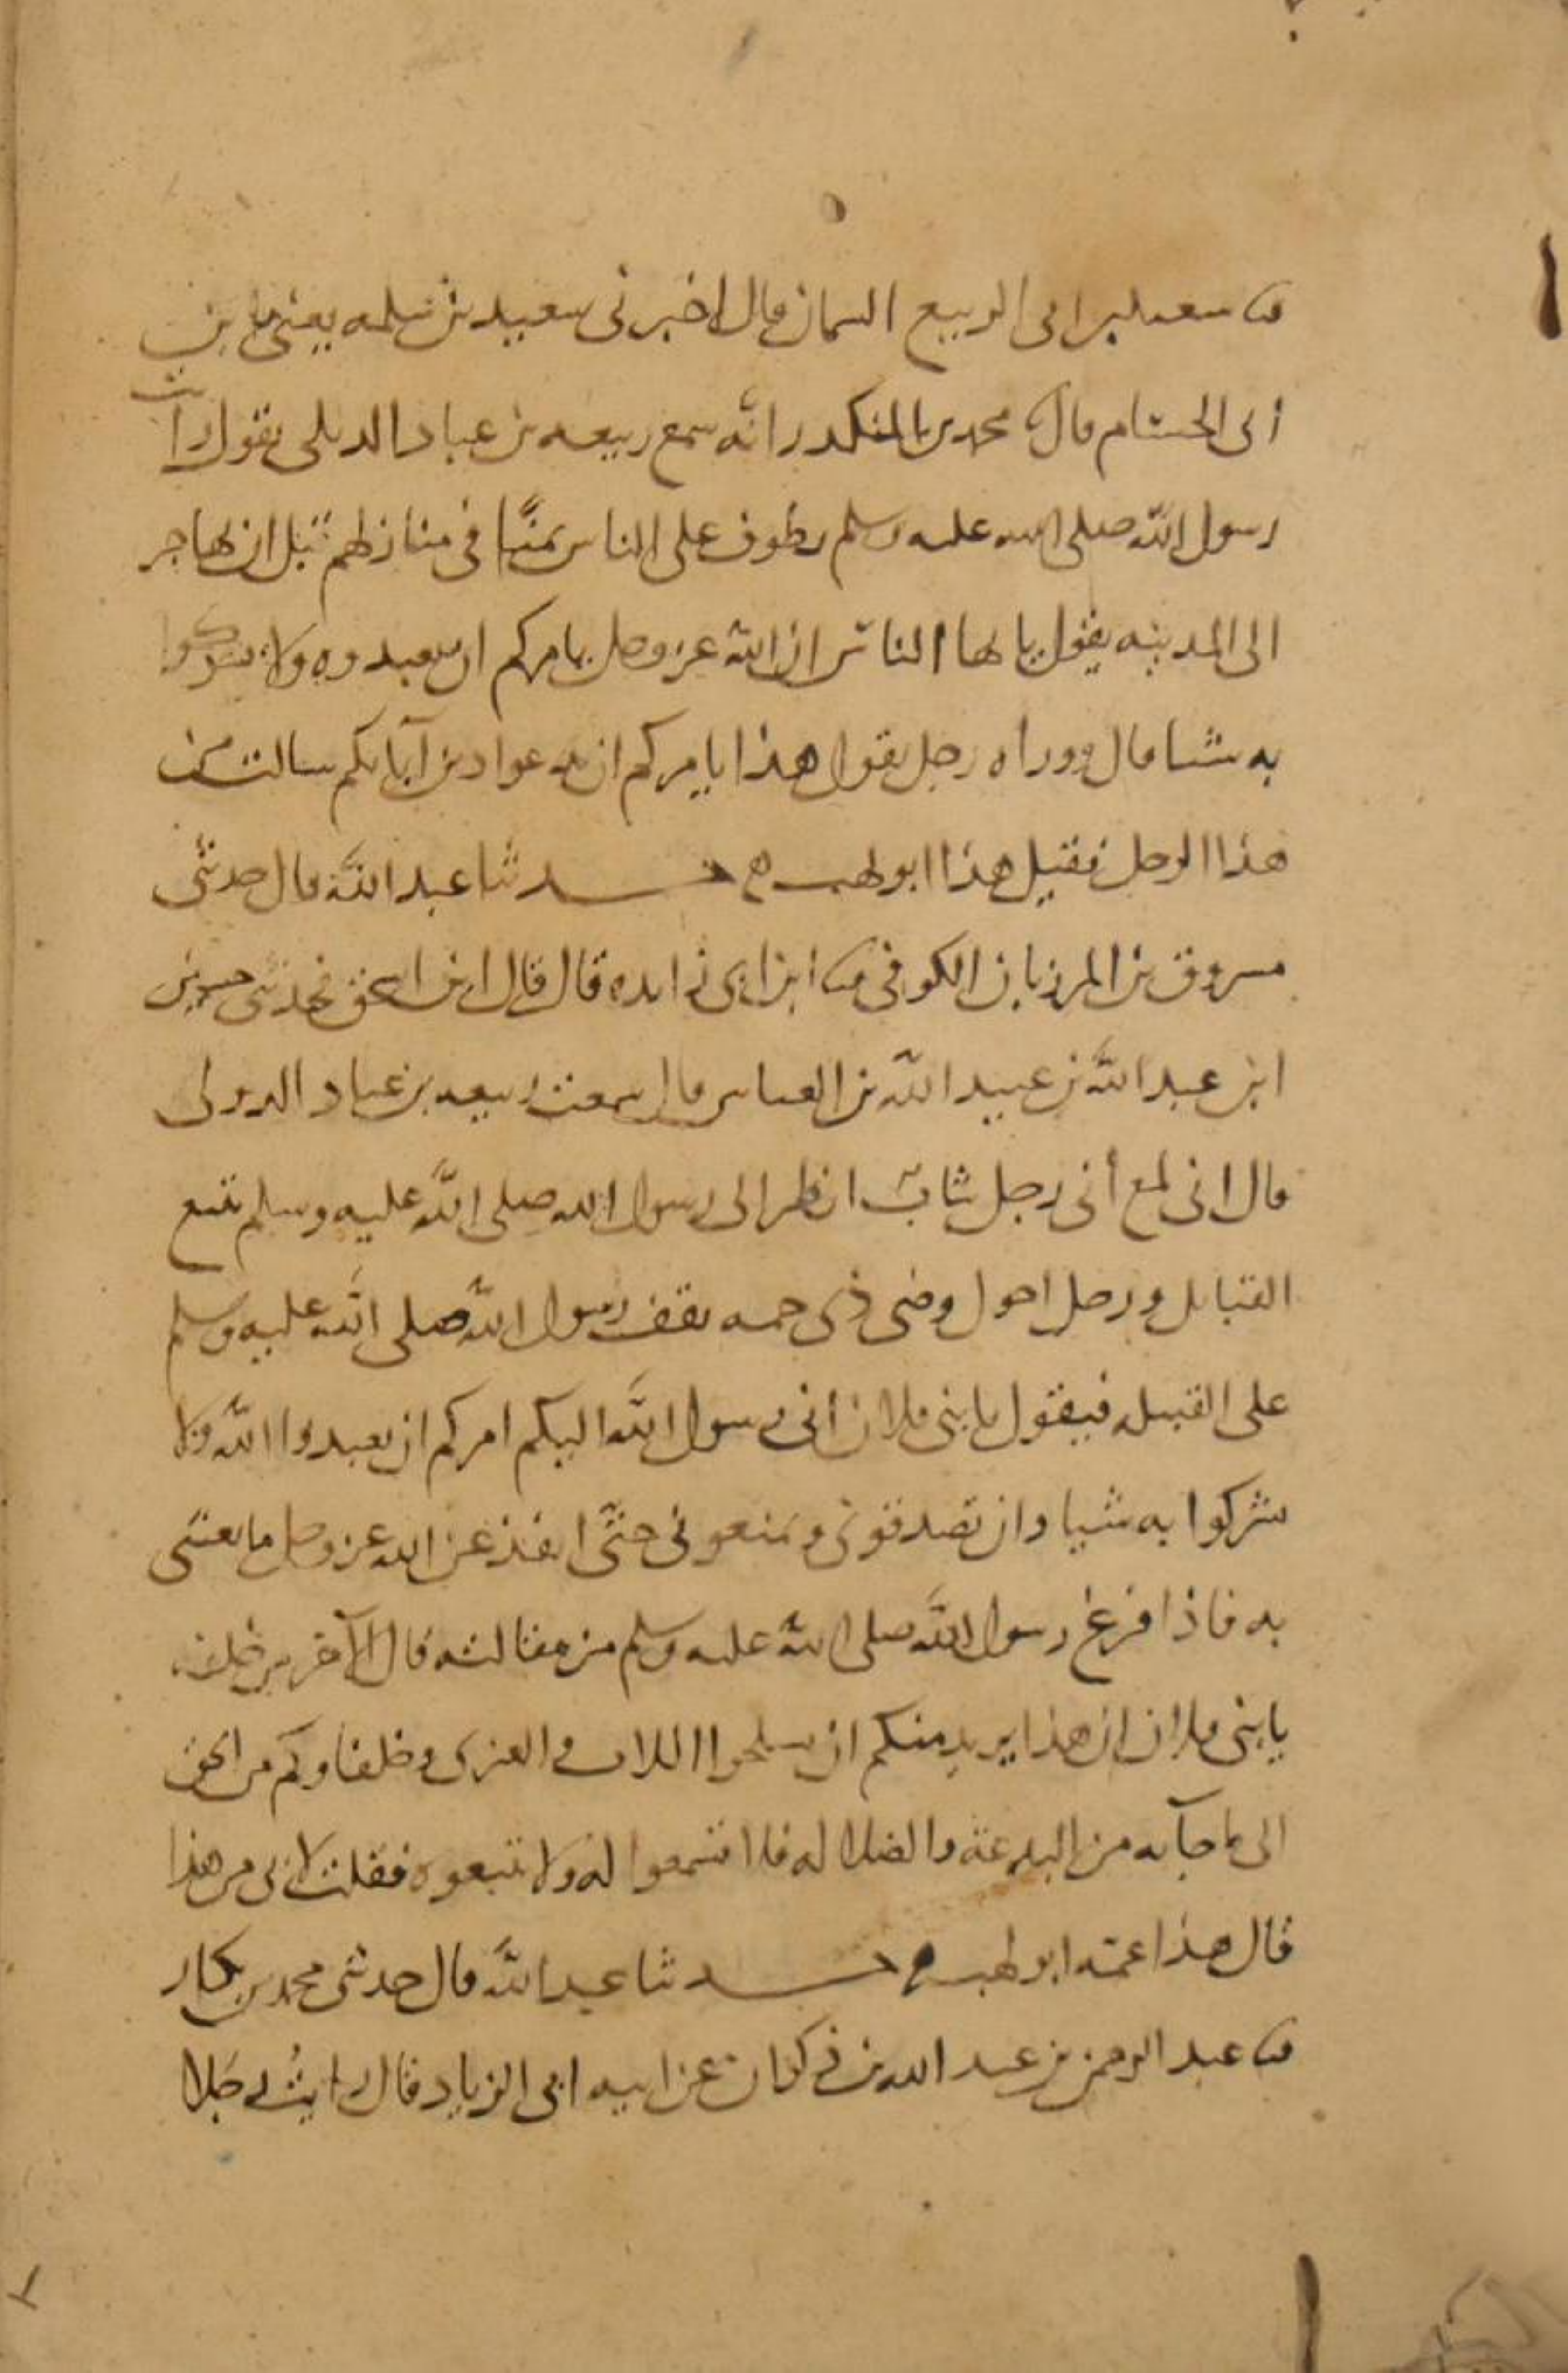 ثنا سعيد بن ابى الربيع السمان قال اخبرنى سعيد بن سلمه يعنى بن
أبى الحسام قال ثنا محمد بن المنكدر انه سمع ربيعه بن عباد الديلى يقول رأيت
رسول الله صلى الله عليه وسلم يطوف على الناس بمنًى فى منازلهم قبل ان يهاجر
الى المدينه يقول يا يها الناس ان الله عز وجل يامركم ان تعبدوه ولا تشركوا
به شيا قال ووراه رجل يقول هذا يا مركم ان تدعوا دين آبائكم سالت من
هذا الرجل فقيل هذا ابو لهب حدثنا عبد الله قال حدثنى
مسروق بن المرزبان الكوفى ثنا ابن ابى زايده قال قال ابن اسحق فحدثنى حسين
ابن عبد الله بن عبيد الله بن العباس قال سمعت ربيعه بن عباد الدولى
قال انى لمع أبى رجل شابّ انظر الى رسول الله صلى الله عليه وسلم يتبع
القبايل ورجل احول وضى ذى جمه يقف رسول الله صلى الله عليه وسلم
على القبيله فيقول يا بنى فلان انى رسول الله اليكم امركم ان تعبدوا الله ولا
تشركوا به شيا وان تصدقونى وتمنعونى حتّى انفذ عن الله عز وجل ما بعثنى
به فاذا فرغ رسول الله صلى الله عليه وسلم من مقالته قال الآخر من خلفه
يا بنى فلان ان هذا يريد منكم ان تسلخوا اللات والعزى وحلفاوكم من الجن
الى ما جآ به من البدعة والضلاله فلا تسمعوا له ولا تتبعوه فقلت لابى من هذا
قال هذا عمّه ابو لهب حدثنا عبد الله قال حدثنى محمد بن بكار
ثنا عبد الرحمن بن عبد الله بن ذكوان عن ابيه ابى الزياد قال رايتُ رجلا